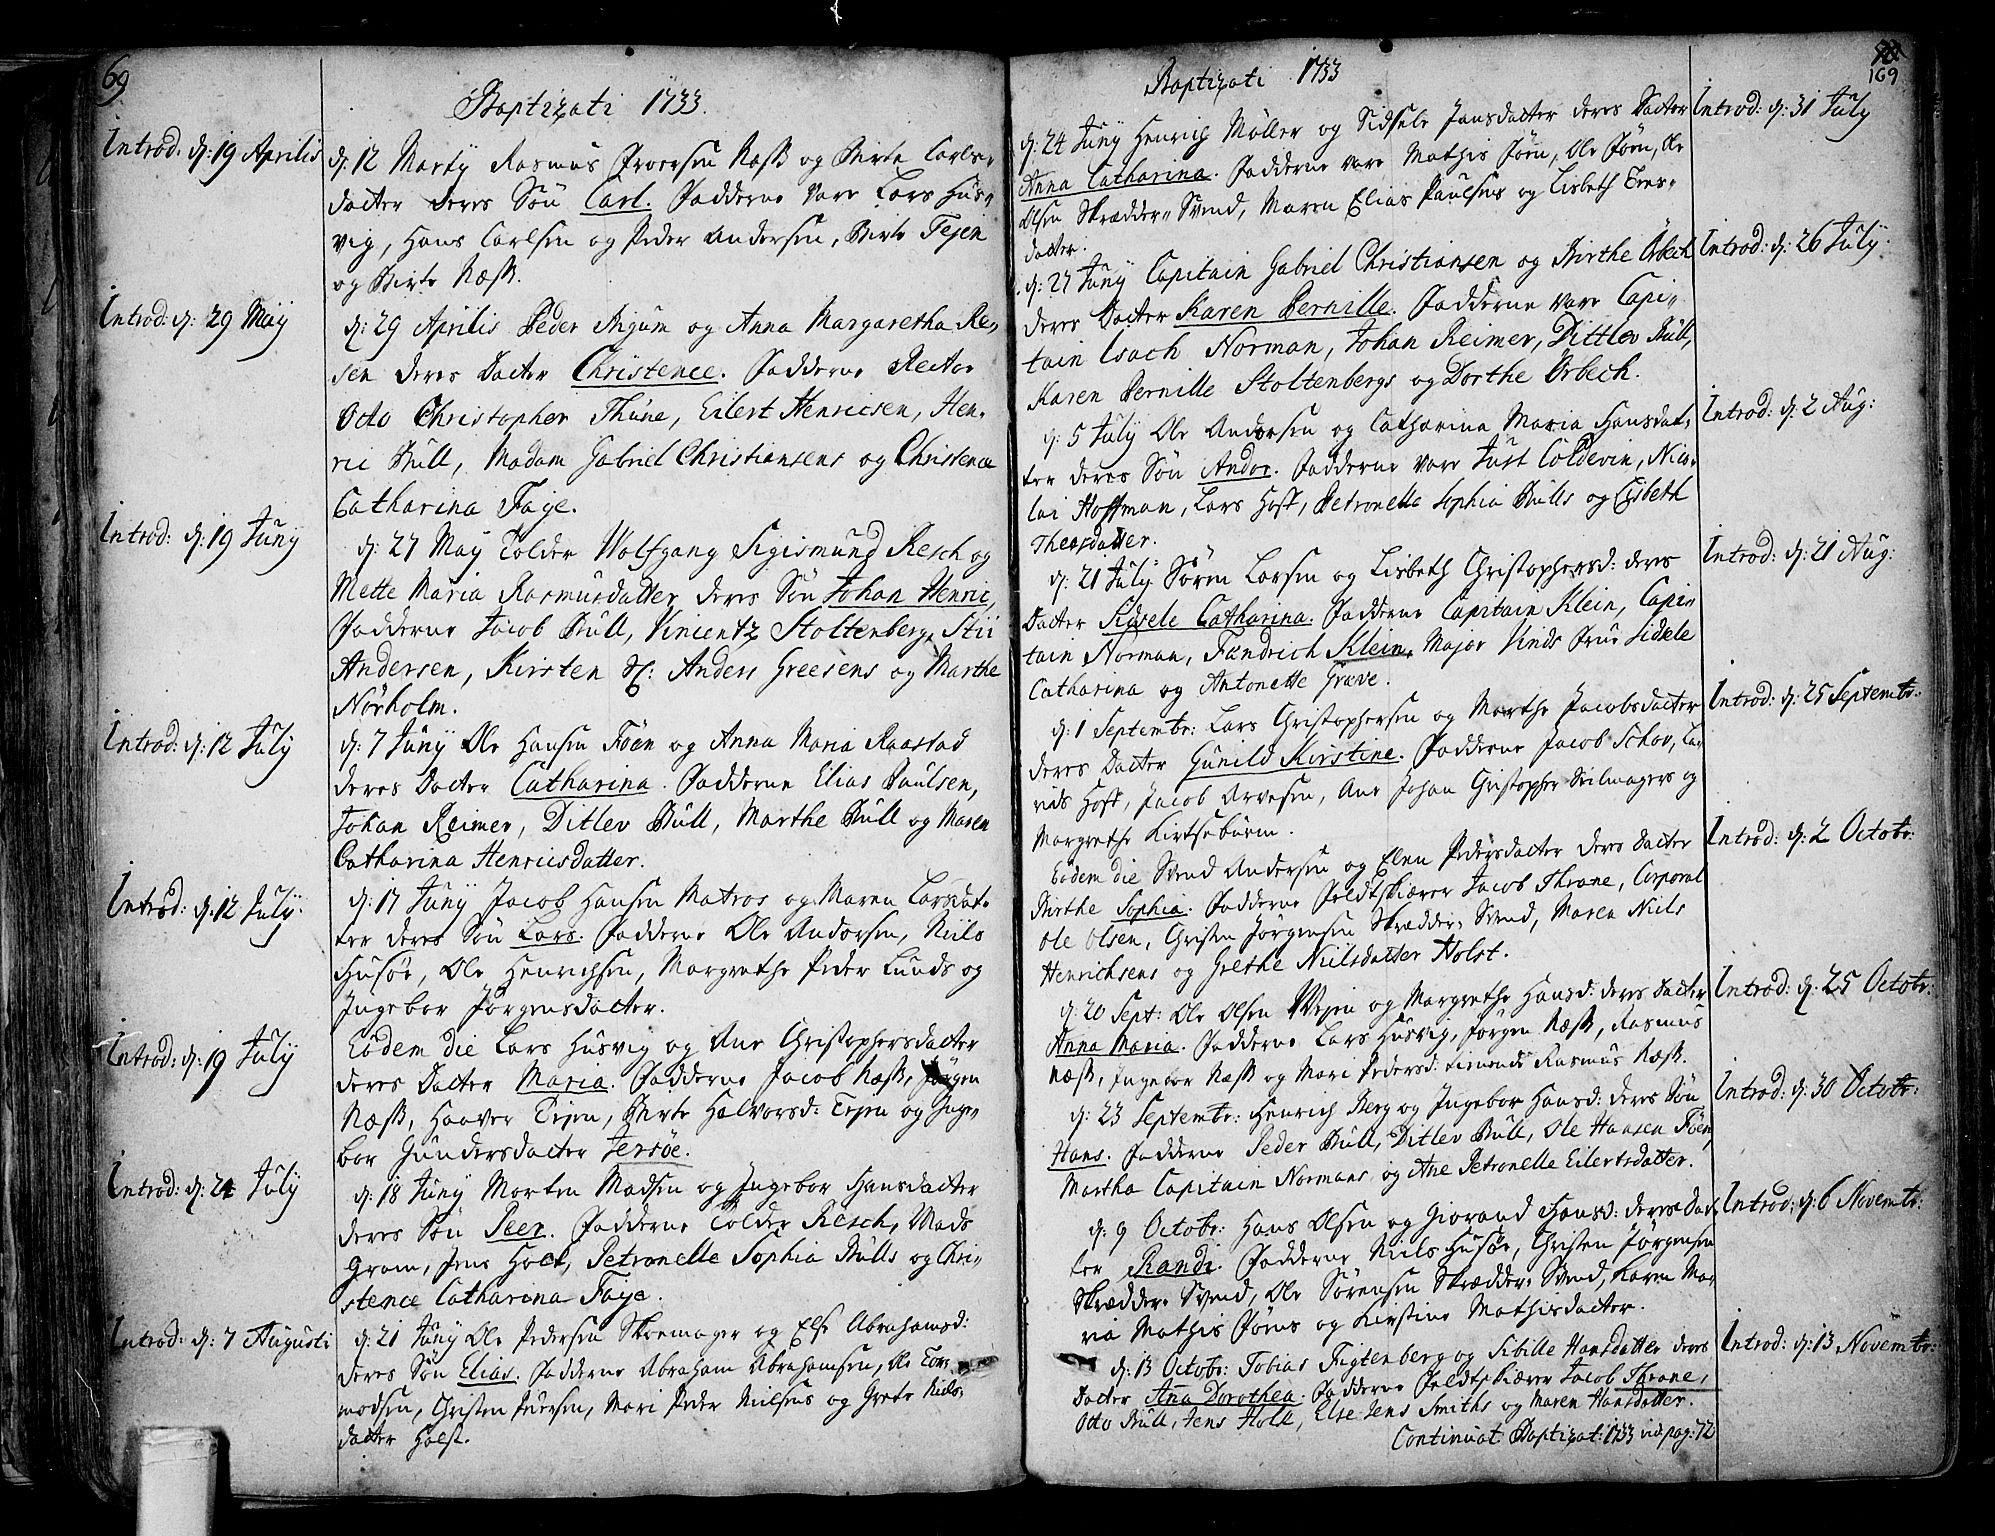 69
Baptizati 1733.
Introd. d: 19 Aprilis
d: 12 Marty Rasmus Iversen Næss og Birte Carls-
dacter deres Sön Carl. Fadderne vare Lars Hus-
vig, Hans Carlsen og Peder Andersen, Birte Tejen
og Birte Næss.
Introd: d: 29 Maÿ
d: 29 Aprilis Peder Rigum og Anna Margaretha Re-
sen deres Dacter Christence. Fadderne Rector
Otto Christopher Thüne, Eilert Henricsen, Hen-
ric Büll, Madam Gabriel Christiansens og Christence
Catharina Faÿe.
Introd: d: 19 Junÿ
d: 27 Maÿ Tolder Wolfgang Sigismund Resch og
Mette Maria Rasmusdatter deres Sön Johan Henric,
Fadderne Jacob Büll, Vincentz Stoltenberg, Stii
Andersen, Kirsten Sl: Anders Greesens og Marthe
Nörholm.
Introd: d: 12 Julÿ
d: 7 Junÿ Ole Hansen Föen og Anna Maria Raastad
deres Dacter Catharina. Fadderne Elias Paulsen,
Johan Reimer, Ditlev Büll, Marthe Büll og Maren
Catharina Henricsdatter.
Introd: d: 12 Julÿ.
d: 17 Junÿ Jacob Hansen Matros og Maren Larsdat-
ter deres Sön Lars. Fadderne Ole Andersen, Niels
Husöe, Ole Henrichsen, Margrethe Peder Lunds og
Ingebor Jörgensdacter.
Introd: d: 19 Julÿ
Eodem die Lars Husvig og Ane Christophersdacter
deres Dacter Maria. Fadderne Jacob Næss, Jörgen
Næss, Haaver Tejen, Birte Halvorsd: Tejen og Inge-
bor Gundersdacter Jersöe.
Introd: d: 24 Julÿ
d: 18 Junÿ Morten Madsen og Ingebor Hansdacter
deres Sön Peer. Fadderne Tolder Resch, Mads
Gram, Jens Holt, Petronelle Sophia Bülls og Chri-
stence Catharina Faÿe.
Introd: d: 7 Augusti
d: 21 Junÿ Ole Pedersen Skoemager og Else Abrahamsd:
deres Sön Elias. Fadderne Abraham Abrahamsen, Ole Tor-
modsen, Christen Pedersen, Mari Peder Nielsens og Grete Niels-
dacter Holst.
169
Baptizati 1733
Introd: d: 31 Julÿ
d: 24 Junÿ Henrich Möller og Sidsele Jansdacter deres Dacter
Anna Catharina. Fadderne vare Mathis Jörn, Ole Jörn, Ole
Olsen Skrædder-Svend, Maren Elias Paulsens og Lisbeth Enes-
dacter.
Introd: d: 26 Julÿ:
d: 27 Junÿ Capitain Gabriel Christiansen og Birthe Örbech
deres Dacter Karen Pernille. Fadderne vare Capi-
tain Isach Norman, Johan Reimer, Dittlev Büll,
Karen Pernille Stoltenbergs og Dorthe Örbech.
Introd: d: 2 Aug:
d: 5 Julÿ Ole Andersen og Catharina Maria Hansdat-
ter deres Sön Andor. Fadderne vare Just Coldevin, Nico-
lai Hoffman, Lars Host, Petronelle Sophia Bülls og Lisbeth
Theosdatter.
Introd: d: 21 Aug:
d: 21 Julÿ Sören Larsen og Lisbeth Christophersd: deres
Dacter Sidsele Catharina. Fadderne Capitain Klein, Capi-
tain Norman, Fændrich Klein, Major Vinds Frue Sidsele
Catharina og Antonette Græve.
Introd: d: 25 Septembr:
d: 1 Septembr: Lars Christophersen og Marthe Jacobsdacter
deres Dacter Gunild Kirstine. Fadderne Jacob Schov, La-
rids Host, Jacob Arvesen, Ane Johan Christopher Seilmagers og
Margrethe Kirtsebörn.
Introd: d: 2 Octobr:
Eodem die Svend Andersen og Elen Pedersdacter deres Dacter
Birthe Sophia. Fadderne Feldtskiærer Jacob Throne, Corporal
Ole Olsen, Christen Jörgensen Skrædder-Svend, Maren Niels
Henrichsens og Grethe Nielsdatter Holst.
Introd: d: 25 Octobr:
d: 20 Sept: Ole Olsen Vejen og Margrethe Hansd: deres Dacter
Anna Maria. Fadderne Lars Husvig, Jörgen Næss, Rasmus
Næss, Ingebor Næss og Mari Pedersd: tienende Rasmus Næss.
Introd: d: 30 Octobr:
d: 23 Septembr: Henrich Berg og Ingebor Hansd: deres Sön
Hans. Fadderne Peder Büll, Ditlev Büll, Ole Hansen Föen,
Martha Capitain Normans og Ane Petronelle Eilertsdatter.
Introd: d: 6 Novembr:
d: 9 Octobr: Hans Olsen og Giorand Hansd: deres Dac-
ter Randi. Fadderne Niels Husöe, Christen Jörgensen
Skrædder-Svend, Ole Sörensen Skrædder-Svend, Karen Ma-
ria Mathis Jörns og Kirstine Mathisdacter.
Introd: d: 13 Novembr:
d: 13 Octobr: Tobias Figtenberg og Sibille Hansdatter deres
Dacter Ana Dorothea. Fadderne Feldtskiærer Jacob Throne,
Otto Büll, Jens Holt, Else Jens Smiths og Maren Hansdatter.
Continuat Baptizat: 1733 vid pag: 72